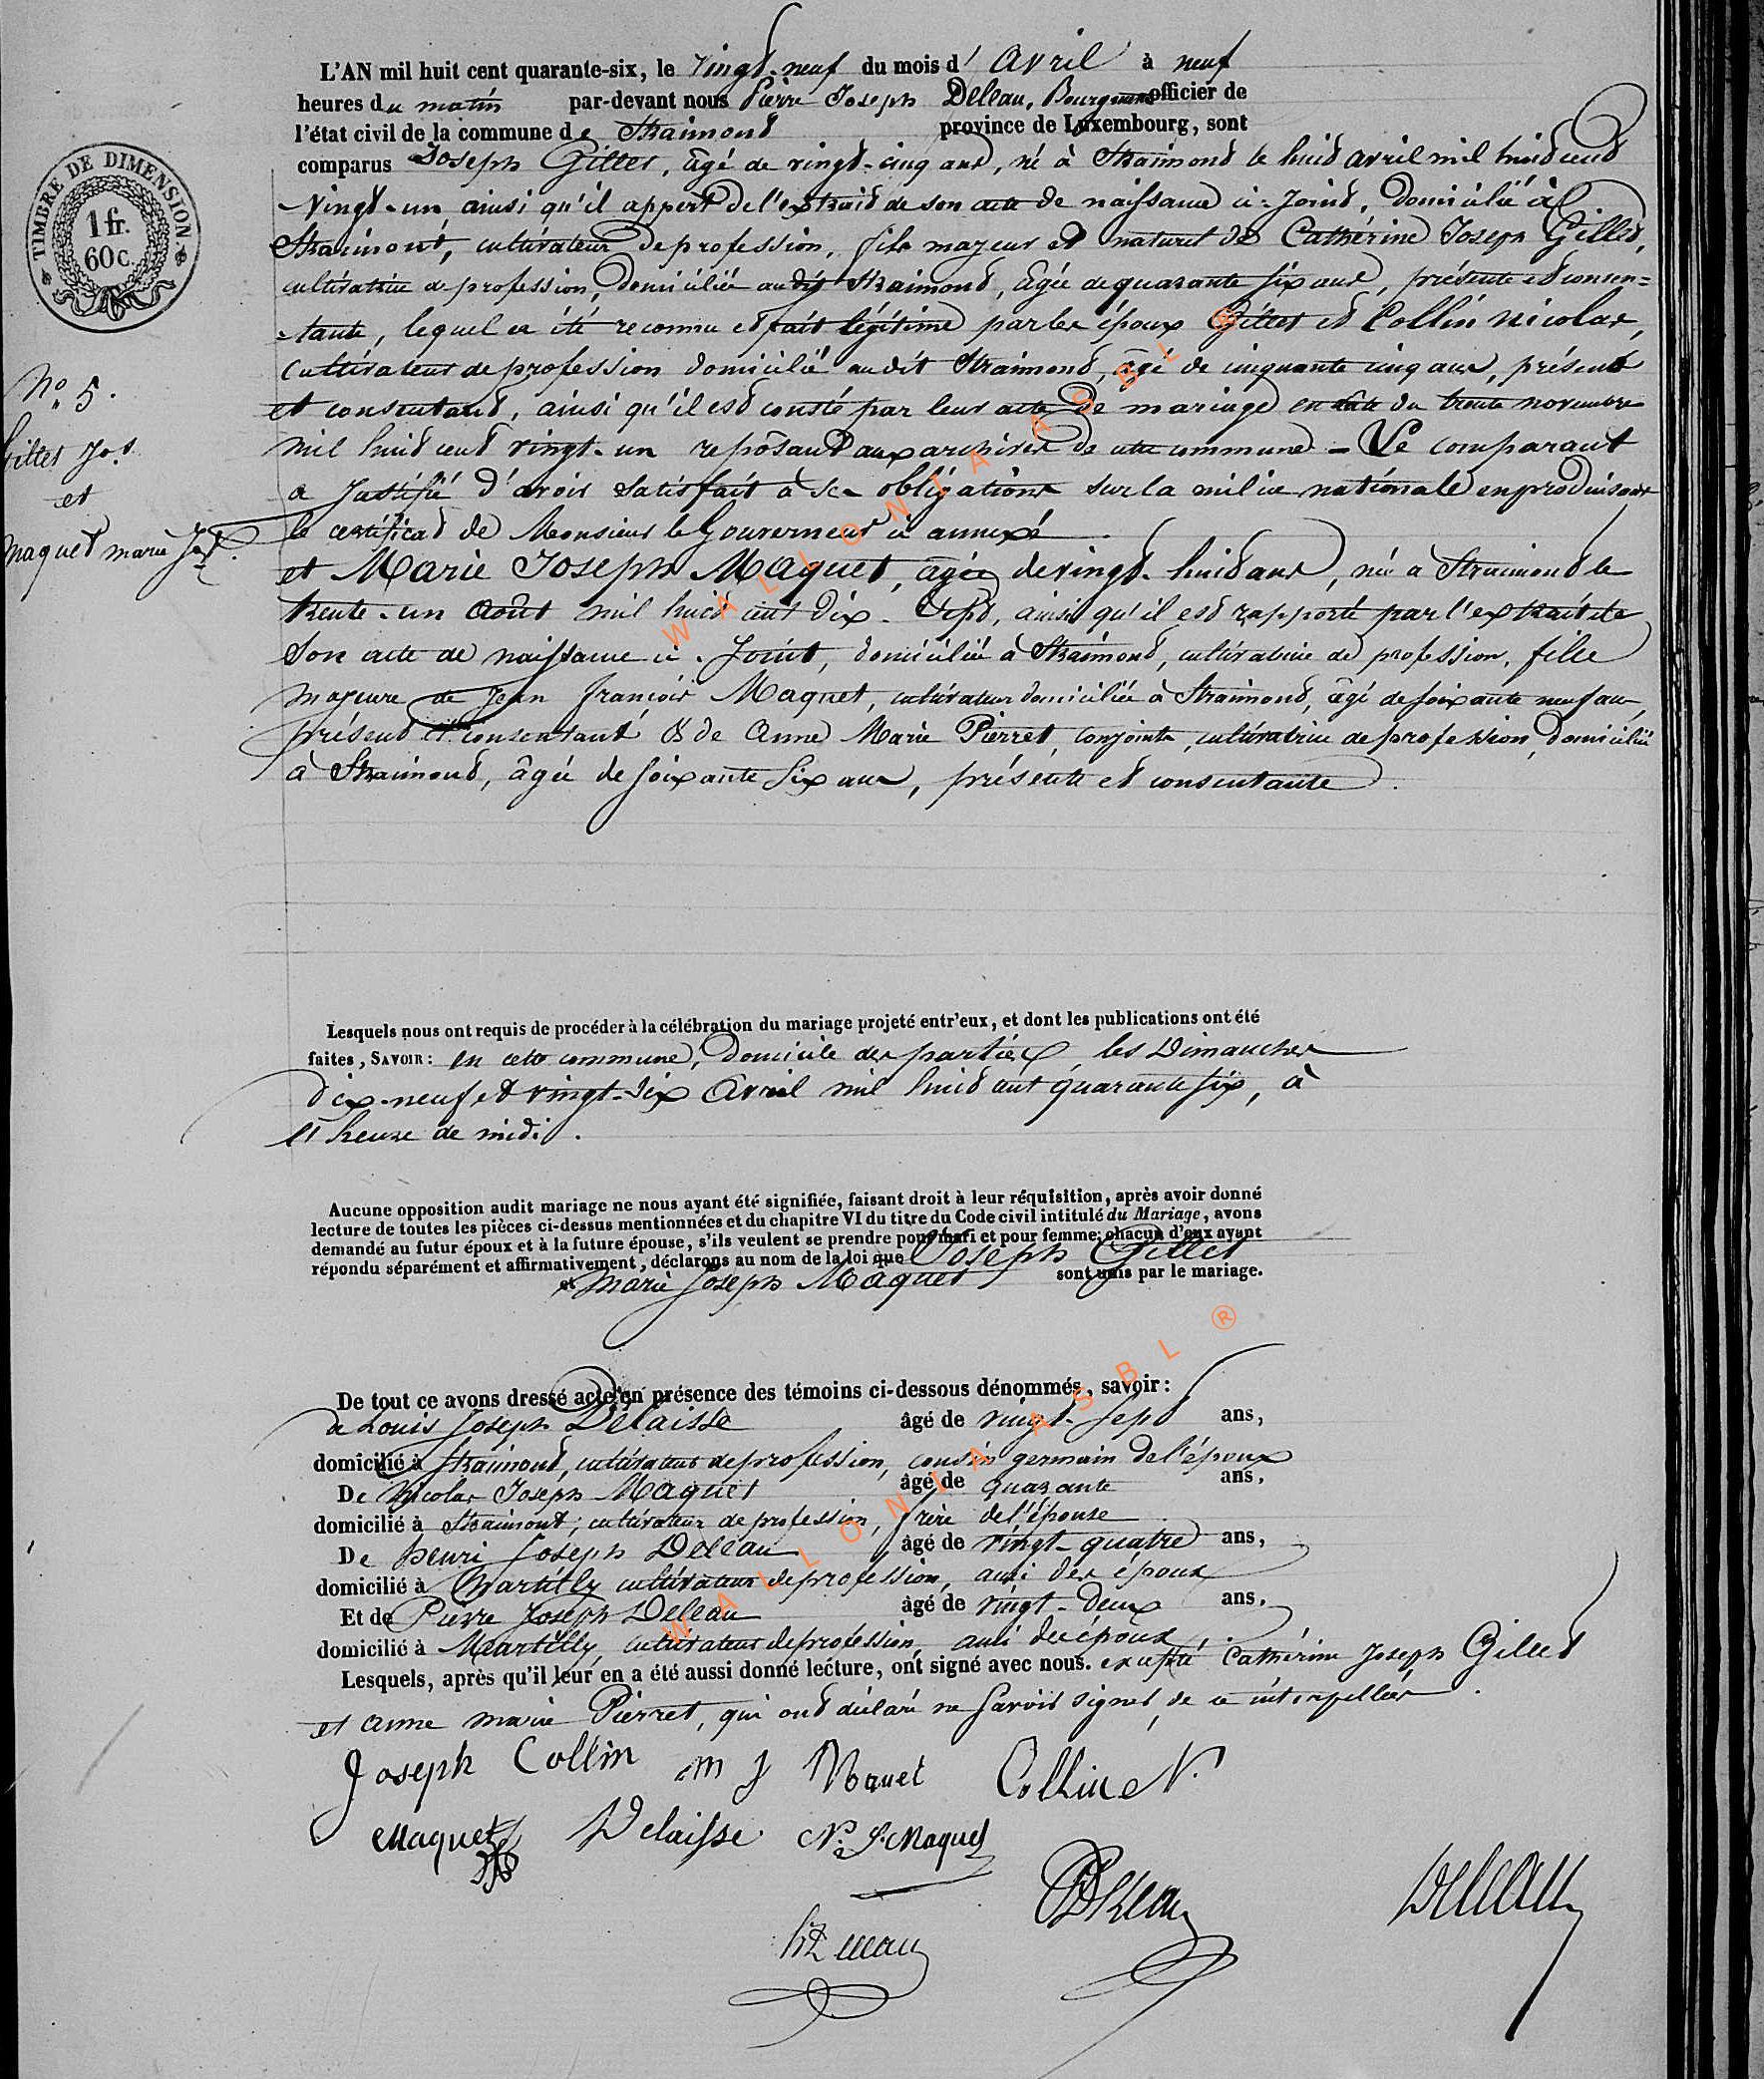 L'AN mil huit cent quarante-six, le vingt-neuf du mois d'avril à neuf
heures du matin par-devant nous Pierre Joseph Deleau, Bourgmestre officier de
l'état civil de la commune de Straimont province de Luxembourg, sont
comparus Joseph Gillet, âgé de vingt-cinq ans, né à Straimont le huit avril mil huit cent
vingt-un ainsi qu'il appert de l'extrait de son acte de naissance ci-joint, domicilié à
Straimont, cultivateur de profession, fils majeur et naturel de Cathérine Joseph Gillet,
cultivatrice de profession, domiciliée audit Straimont, âgée de quarante six ans, présente et consen=
tante, lequel a été reconnu et fait légitime par les époux Gillet et Collin Nicolas,
cultivateur de profession domicilié audit Straimont, âgé de cinquante cinq ans, présent
et consentant, ainsi qu'il est consté par leur acte de mariage en date du trente novembre
mil huit cent vingt-un reposant aux archives de cette commune - Le comparant
a justifié d'avoir satisfait à ses obligations sur la milice nationale en produisant
le certificat de Monsieur le Gouverneur ci annexé.
et Marie Joseph Maquet, âgée de vingt-huit ans, née à Straimont le
trente-un août mil huit cent dix-sept, ainsi qu'il est rapporté par l'extrait de
son acte de naissance ci-joint, domiciliée à Straimont, cultivatrice de profession, fille
majeure de Jean François Maquet, cultivateur domiciliée à Straimont, âgé de soixante neuf ans,
présent et consentant & de Anne Marie Pierret, conjointe, cultivatrice de profession, domiciliée
à Straimont, âgée de soixante six ans, présente et consentante.
TIMBRE DE DIMENSION.
1 fr.
60 c.
No 5.
Gillet Jos.
et
Maquet marie Jos.
Lesquels nous ont requis de procéder à la célébration du mariage projeté entr'eux, et dont les publications ont été
faites, SAVOIR: en cette commune, domicile des parties, les Dimanches
dix-neuf et vingt-six avril mil huit cent quarante six, à
l'heure de midi.
Aucune opposition audit mariage ne nous ayant été signifiée, faisant droit à leur réquisition, après avoir donné
lecture de toutes les pièces ci-dessus mentionnées et du chapitre VI du titre du Code civil intitulé du Mariage, avons
demandé au futur époux et à la future épouse, s'ils veulent se prendre pour mari et pour femme; chacun d'eux ayant
répondu séparément et affirmativement, déclarons au nom de la loi que Joseph Gillet
et Marie Joseph Maquet sont unis par le mariage.
De tout ce avons dressé acte en présence des témoins ci-dessous dénommés, savoir:
de Louis Joseph Delaisse âgé de vingt-sept ans,
domicilié à Straimont, cultivateur de profession, cousin germain de l'époux
De Nicolas Joseph Maquet âgé de quarante ans,
domicilié à Straimont, cultivateur de profession, frère de l'épouse
De henri Joseph Deleau âgé de vingt-quatre ans,
domicilié à Martilly cultivateur de profession, ami des époux
Et de Pierre Joseph Deleau âgé de vingt-deux ans,
domicilié à Martilly, cultivateur de profession, ami des époux.
Lesquels, après qu'il leur en a été aussi donné lecture, ont signé avec nous. excepté Cathérine Joseph Gillet
et anne marie Pierret, qui ont déclaré ne savoir signer, de ce interpellées.
Joseph Collin m j Maquet Collin N.
Maquet Delaisse N. J. Maquet
Deleau
WALLONIA ASBL ®
WALLONIA ASBL ®